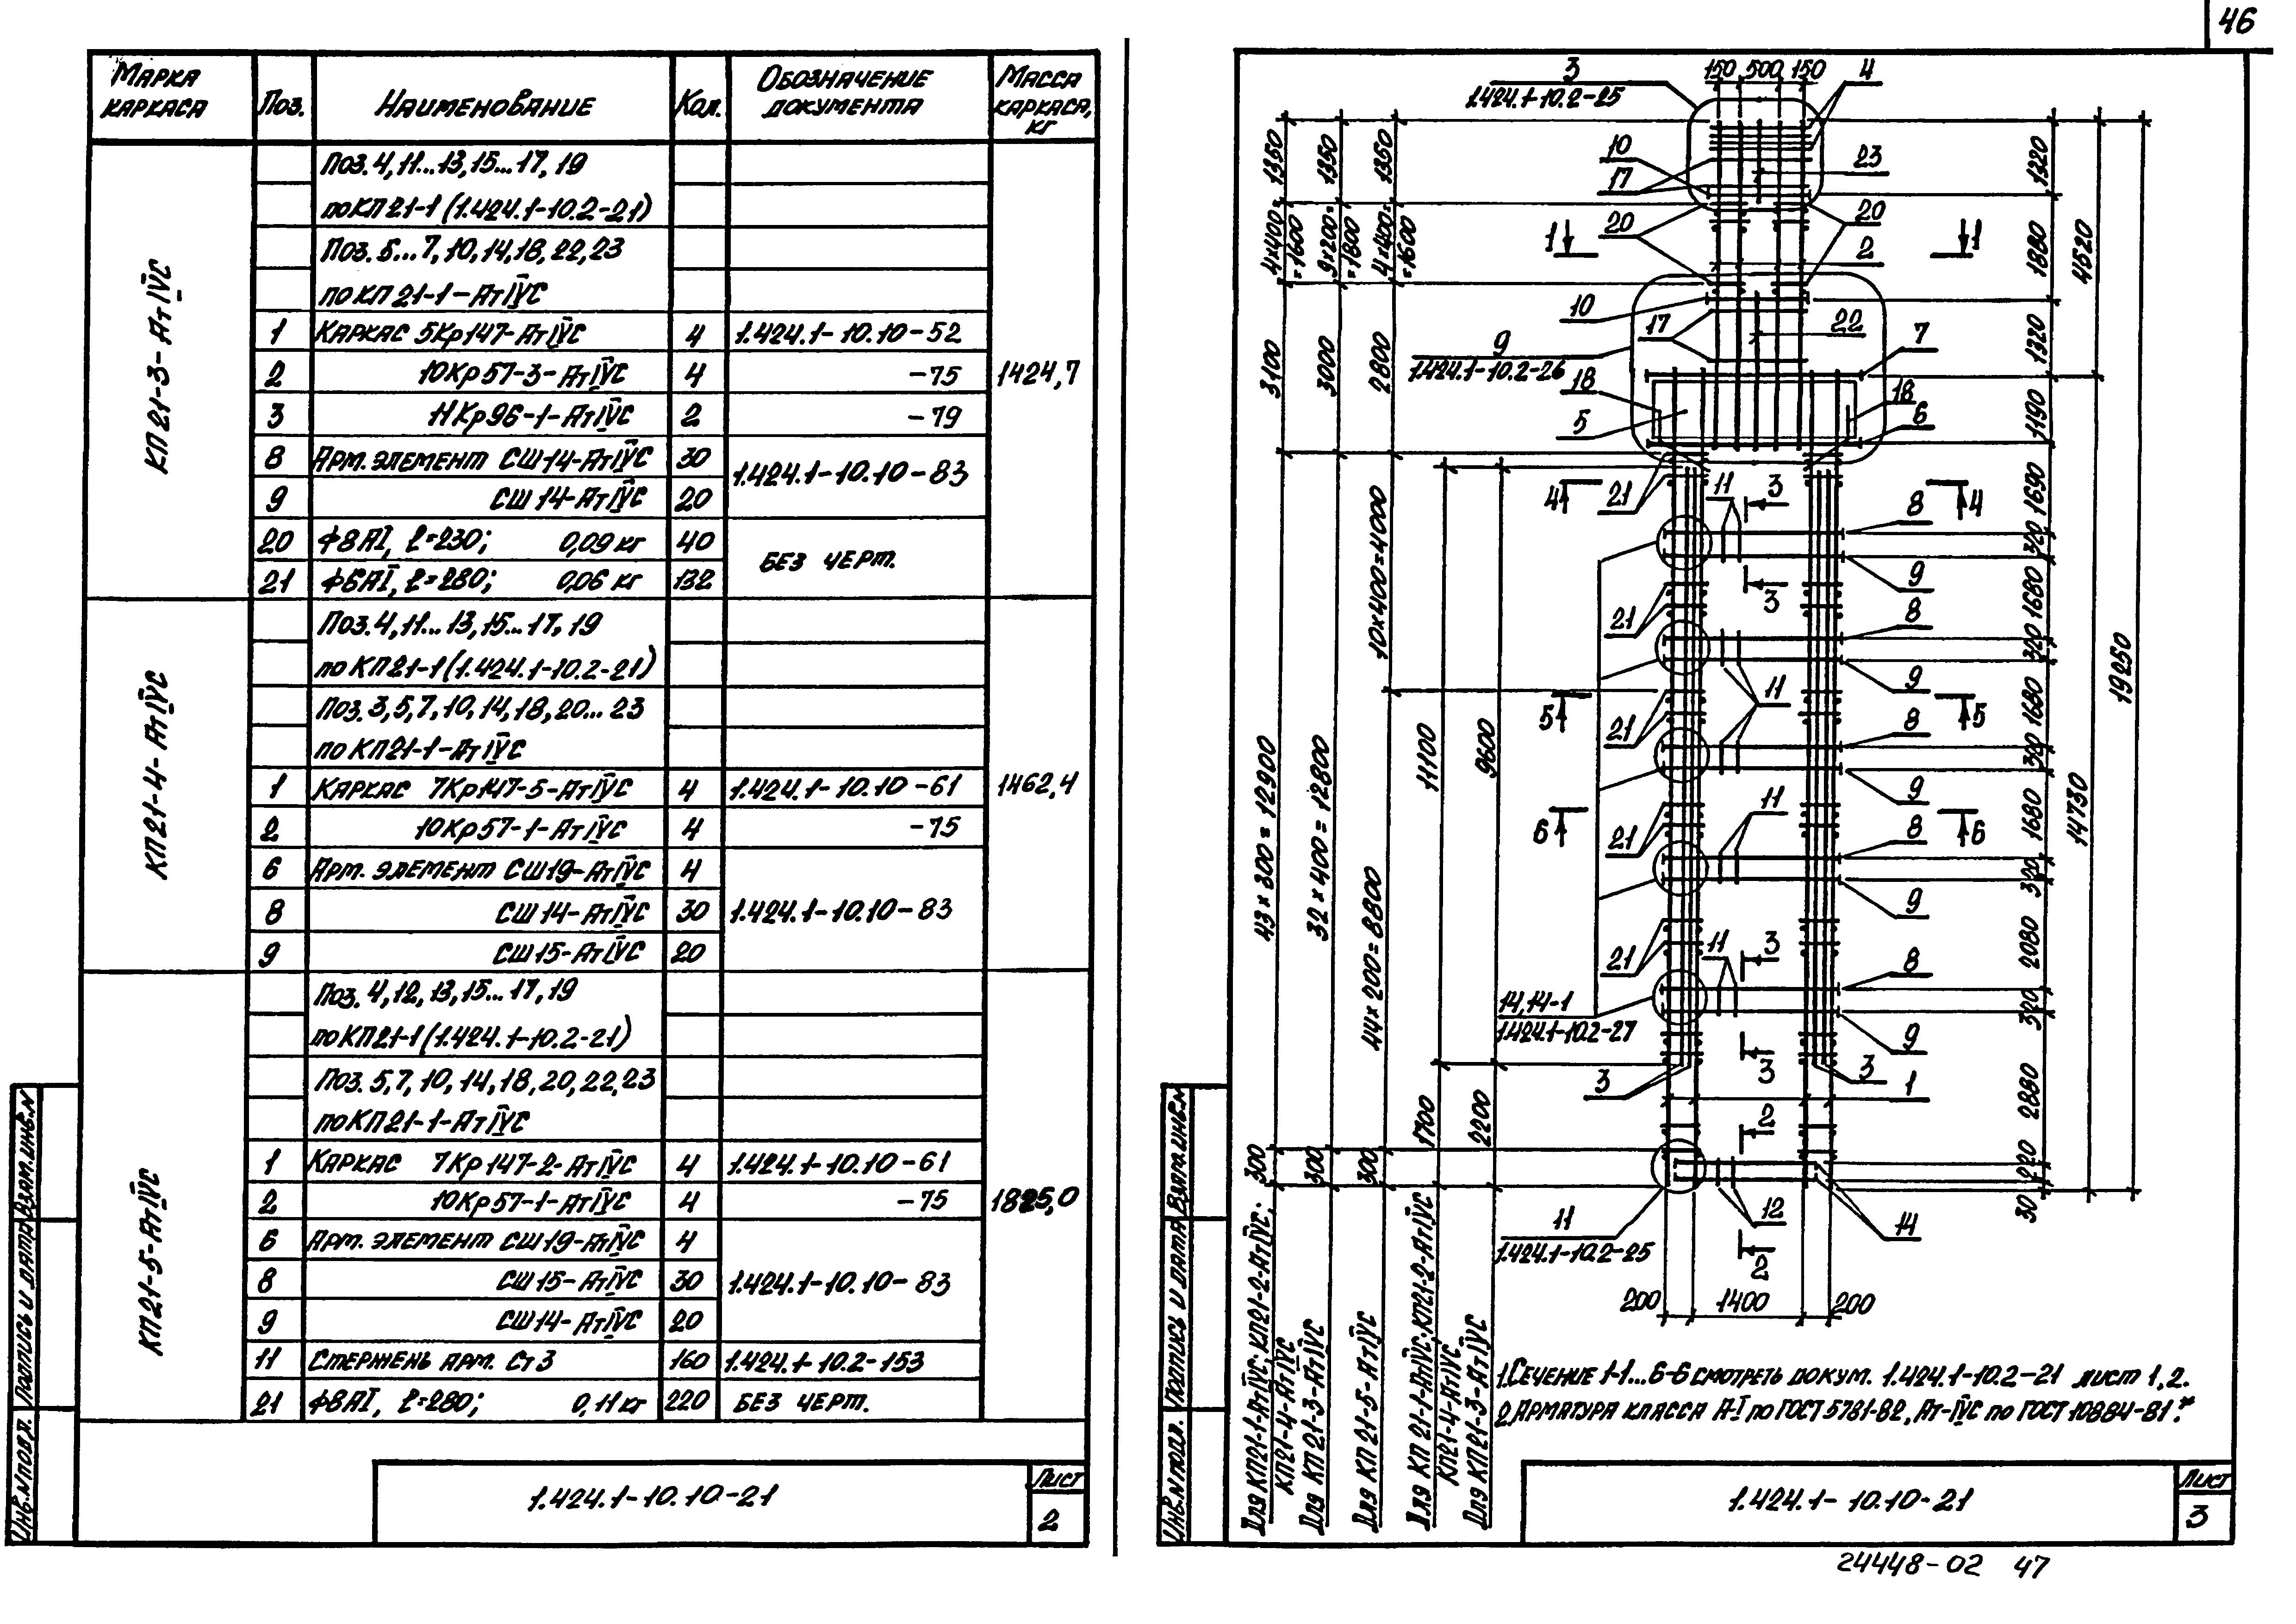 46
Марка каркаса
Поз.
Наименование
Кол.
Обозначение документа
Масса каркаса, кг
КП21-3-АтIVС
Поз. 4, 11...13, 15...17, 19
по КП21-1 (1.424.1-10.2-21)
Поз. 5...7, 10, 14, 18, 22, 23
по КП 21-1-АтIVС
1 Каркас 5Кр147-АтIVС 4 1.424.1-10.10-52
2 10Кр57-3-АтIVС 4 -75
1424,7
3 11Кр96-1-АтIVС 2 -79
8 Арм. элемент СШ14-АтIVС 30
1.424.1-10.10-83
9 СШ14-АтIVС 20
20 Ф8АI, ℓ=230; 0,09 кг 40
без черт.
21 Ф6АI, ℓ=280; 0,06 кг 132
КП21-4-АтIVС
Поз. 4, 11...13, 15...17, 19
по КП21-1 (1.424.1-10.2-21)
Поз. 3, 5, 7, 10, 14, 18, 20...23
по КП21-1-АтIVС
1 Каркас 7Кр147-5-АтIVС 4 1.424.1-10.10-61
1462,4
2 10Кр57-1-АтIVС 4 -75
6 Арм. элемент СШ19-АтIVС 4
8 СШ14-АтIVС 30 1.424.1-10.10-83
9 СШ15-АтIVС 20
КП21-5-АтIVС
Поз. 4, 12, 13, 15...17, 19
по КП21-1 (1.424.1-10.2-21)
Поз. 5, 7, 10, 14, 18, 20, 22, 23
по КП21-1-АтIVС
1 Каркас 7Кр147-2-АтIVС 4 1.424.1-10.10-61
2 10Кр57-1-АтIVС 4 -75
1825,0
6 Арм. элемент СШ19-АтIVС 4
8 СШ15-АтIVС 30 1.424.1-10.10-83
9 СШ14-АтIVС 20
11 Стержень арм. Ст3 160 1.424.1-10.2-153
21 Ф8АI, ℓ=280; 0,11 кг 220 без черт.
Инв.N подл.
Подпись и дата
Взам.инв.N
1.424.1-10.10-21
Лист
2
3
1.424.1-10.2-25
150 500 150
4
10
17
23
20
20
1
1
2
10
17
22
7
9
1.424.1-10.2-26
18
18
5
6
21
11
3
4
4
8
9
3
21
8
9
11
5
5
21
8
9
11
6
6
21
8
9
11
3
21
8
14,14-1
1.424.1-10.2-27
9
3
3
3
1
2
12
14
11
1.424.1-10.2-25
2
200 1400 200
1350
4×400=
=1600
3100
43×300=12900
300
1350
9×200=
=1800
3000
32×400=12800
300
1350
4×400=
=1600
2800
10×400=4000
44×200=8800
300
11100
1700
9600
2200
1320
1880
1320
1190
1690
320
1680
320
1680
320
1680
320
2080
320
2880
220
30
4520
14730
19250
Для КП21-1-АтIVС; КП21-2-АтIVС;
КП21-4-АтIVС
Для КП21-3-АтIVС
Для КП21-5-АтIVС
Для КП21-1-АтIVС; КП21-2-АтIVС
КП21-4-АтIVС
Для КП21-3-АтIVС
1. Сечение 1-1...6-6 смотреть докум. 1.424.1-10.2-21 лист 1, 2.
2. Арматура класса А-I по ГОСТ 5781-82, Ат-IVС по ГОСТ 10884-81.*
Инв.N подл.
Подпись и дата
Взам.инв.N
1.424.1-10.10-21
Лист
3
24448-02 47